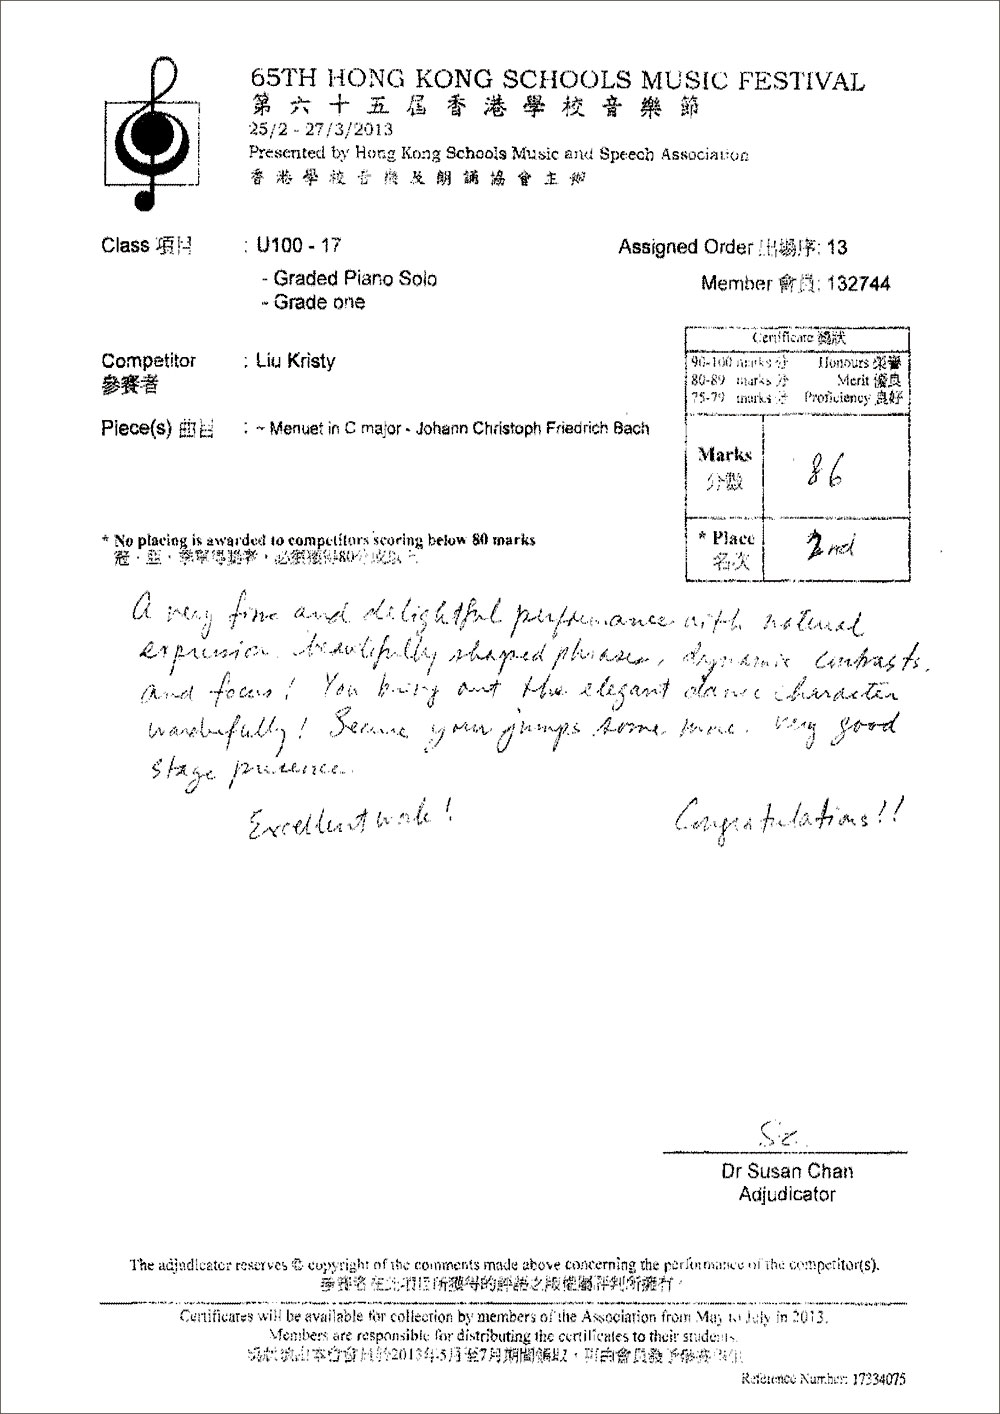 65TH HONG KONG SCHOOLS MUSIC FESTIVAL
第六十五屆香港學校音樂節
25/2 - 27/3/2013
Presented by Hong Kong Schools Music and Speech Association
香港學校音樂及朗誦協會主辦
Class 項目 : U100 - 17
Assigned Order 出場序: 13
- Graded Piano Solo
Member 會員: 132744
- Grade one
Certificate 獎狀
90-100 marks 分 Honours 榮譽
80-89 marks 分 Merit 優良
75-79 marks 分 Proficiency 良好
Competitor : Liu Kristy
參賽者
Piece(s) 曲目 : ~ Menuet in C major - Johann Christoph Friedrich Bach
Marks 86
分數
* Place 2nd
名次
* No placing is awarded to competitors scoring below 80 marks
冠、亞、季軍得獎者，必須獲得80分或以上
A very fine and delightful performance with natural
expression, beautifully shaped phrases, dynamic contrasts,
and focus! You bring out the elegant dance character
wonderfully! Secure your jumps some more. Very good
stage presence.
Excellent work! Congratulations!!
Dr Susan Chan
Adjudicator
The adjudicator reserves © copyright of the comments made above concerning the performance of the competitor(s).
參賽者在此項目所獲得的評語之版權屬評判所擁有。
Certificates will be available for collection by members of the Association from May to July in 2013.
Members are responsible for distributing the certificates to their students.
2013年5月至7月期間領取，
Reference Number: 17334075